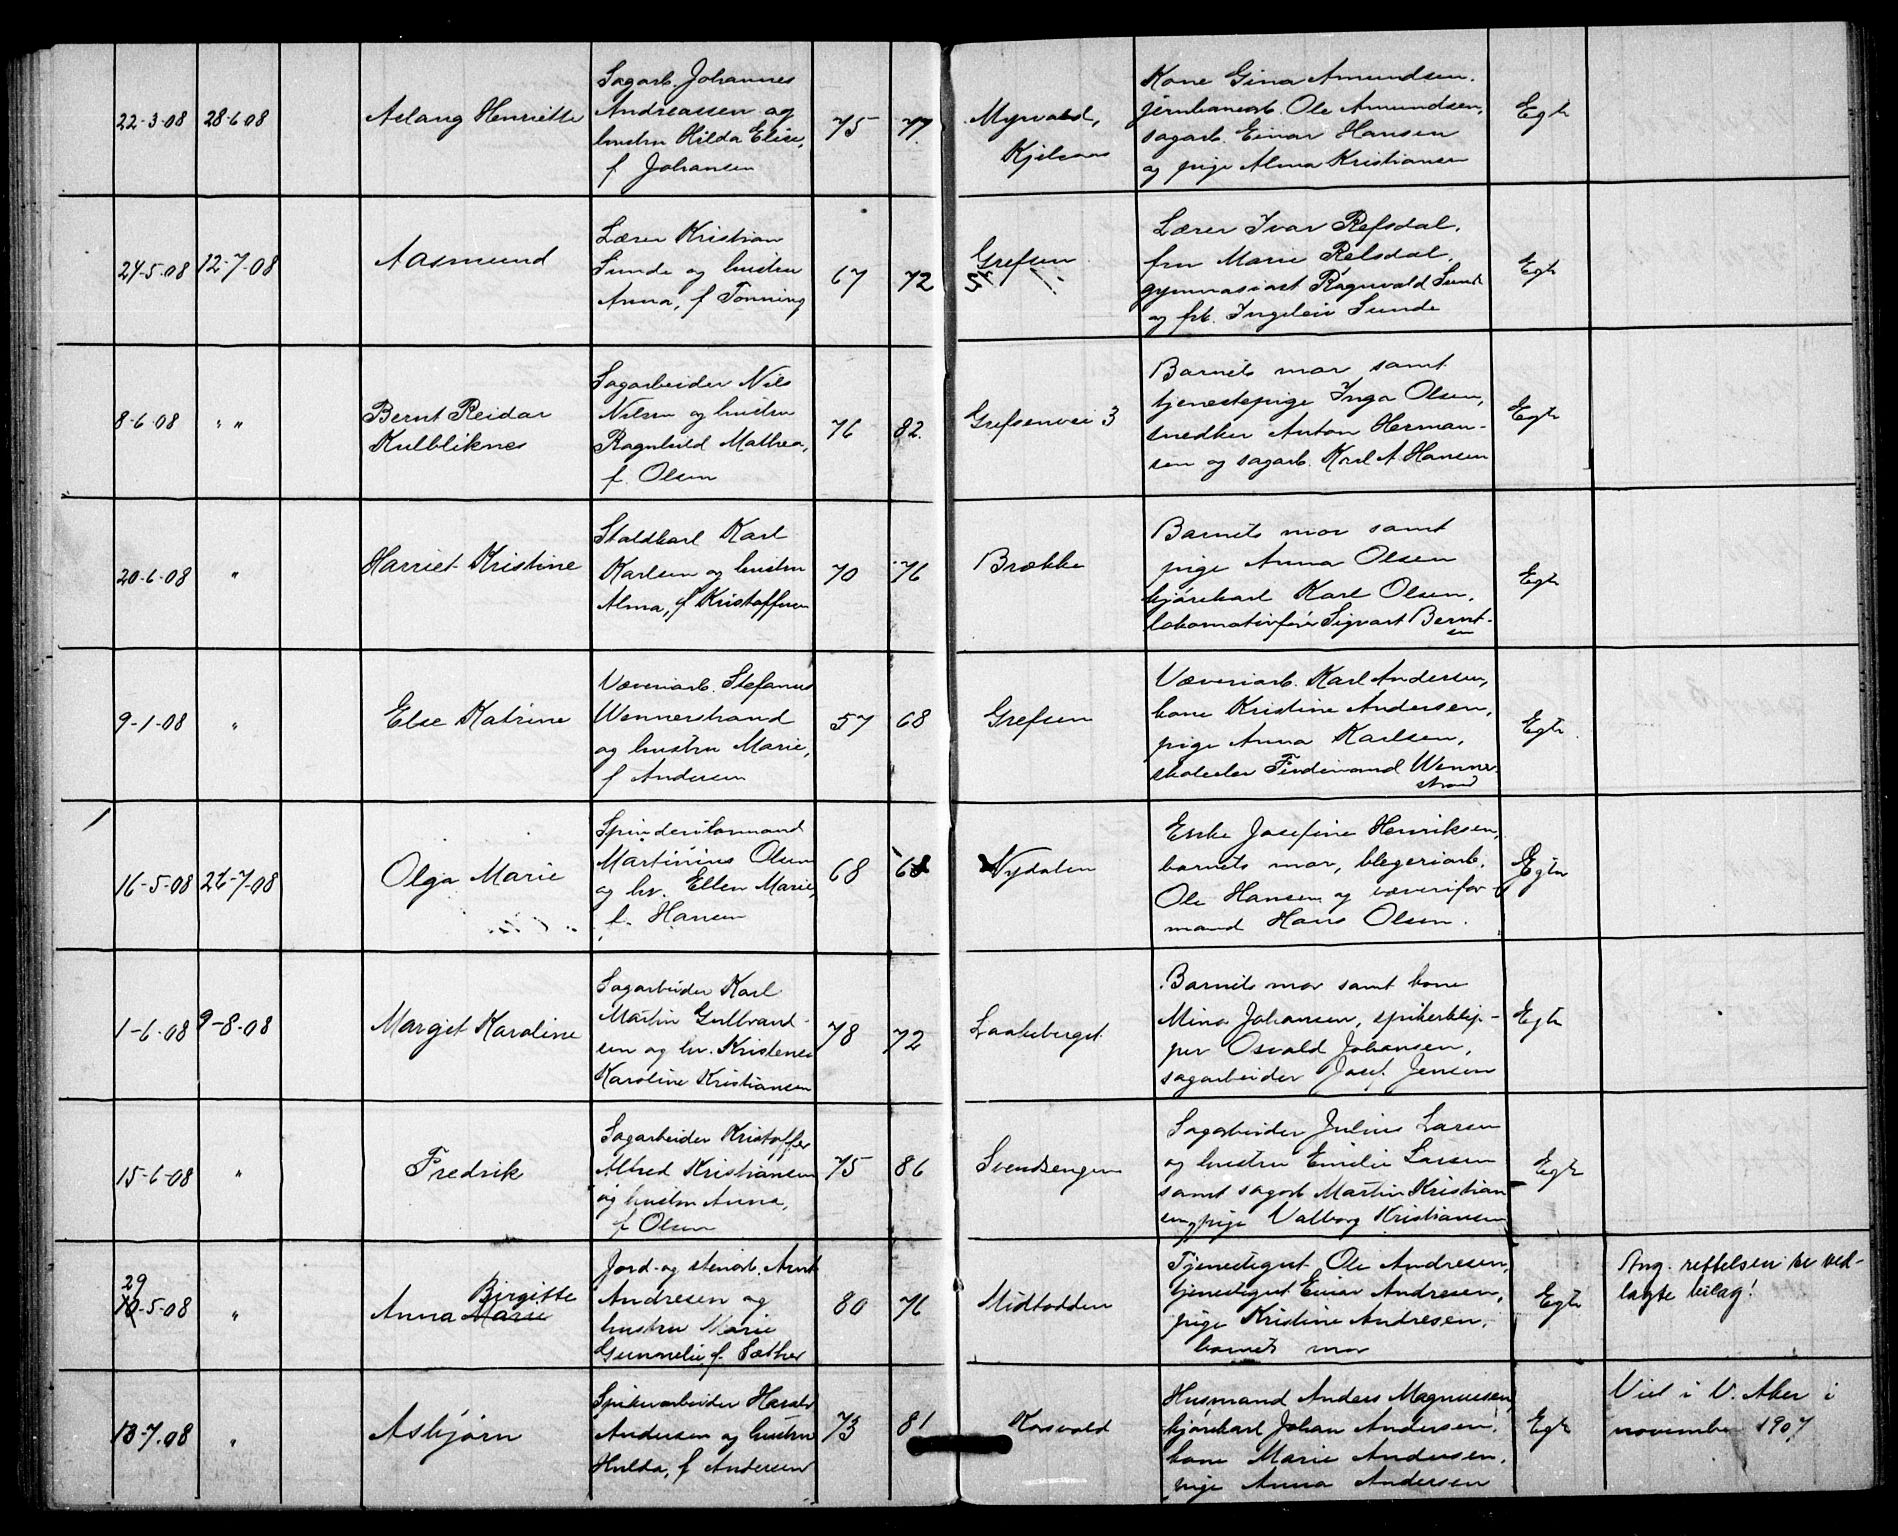 22-3-08 28-6-08 Aslaug Henriette
Sagarb. Johannes
Andreassen og
hustru Hilda Elise,
f Johansen
75 77
Myrvold,
Kjelsaas
Kone Gina Amundsen.
jernbanearb. Ole Amundsen,
sagarb. Einar Hansen
og pige Alma Kristiansen
Egte
24-5-08 12-7-08 Aasmund
Lærer Kristian
Sunde og hustru
Anna, f Tonning
67 72
Grefsen
Lærer Ivar Refsdal.
fru Marie Refsdal.
gymnasiast Ragnvald Sunde
og frk. Ingeleiv Sunde
Egte
8-6-08 " "
Bernt Reidar
Kulbliknes
Sagarbeider Nils
Nilsen og hustru
Ragnhild Mathea,
f. Olsen
76 82.
Grefsenvei 3
Barnets mor samt
tjenestepige Inga Olsen,
snedker Anton Herman-
sen og sagarb. Karl A. Hansen
Egte
20-6-08 " Harriet Kristine
Staldkarl Karl
Karlsen og hustru
Alma, f Kristoffersen
70 76
Brække
Barnets mor samt
pige Anna Olsen
kjørekarl Karl Olsen,
lokomotivfører Sigvart Bernt-
sen
Egte
9-1-08 " Else Katrine
Væveriarb. Stefanus
Wennerstrand
og hustru Marie,
f Andersen
57 68
Grefsen
Væveriarb. Karl Andersen,
kone Kristine Andersen,
pige Anna Karlsen,
skoleelev Ferdinand Wenner-
strand
Egte.
16-5-08 26-7-08 Olga Marie
Spinderiformand
Martinius Olsen
og hr. Ellen Marie,
f. Hansen
68 68
Nydalen
Enke Josefine Henriksen,
barnets mor, blegeriarb.
Ole Hansen og væverifor-
mand Hans Olsen.
Egte
1-6-08 9-8-08 Margit Karoline
Sagarbeider Karl
Martin Gulbrand-
sen og hr. Kristense
Karoline Kristiansen
78 72
Laakeberget
Barnets mor samt kone
Mina Johansen, spikerklip-
per Osvald Johansen,
sagarbeider Josef Jensen
Egte
15-6-08 " Fredrik
Sagarbeider Kristoffer
Alfred Kristiansen
og hustru Anna,
f Olsen
75 86
Svendsengen
Sagarbeider Julius Larsen
og hustru Emilie Larsen
samt sagarb Martin Kristian
sen, pige Valborg Kristiansen
Egte
29
10-5-08 "
Birgitte
Anna Marie
Jord- og stenarb. Arnt
Andresen og
hustru Marie
Gunnelie f. Sæther
80 76
Midtodden
Tjenestegut Ole Andresen,
tjenestegut Einar Andresen,
pige Kristine Andresen,
barnets mor
Egte
Ang. rettelsen se ved-
lagte bilag!
13-7-08 " Asbjørn
Spikerarbeider Harald
Andersen og hustru
Hulda, f Andersen
73 81
Korsvold
Husmand Anders Magnussen,
kjørekarl Johan Andersen,
kone Marie Andersen,
pige Anna Andersen
Egte
Viet i V. Aker i
november 1907